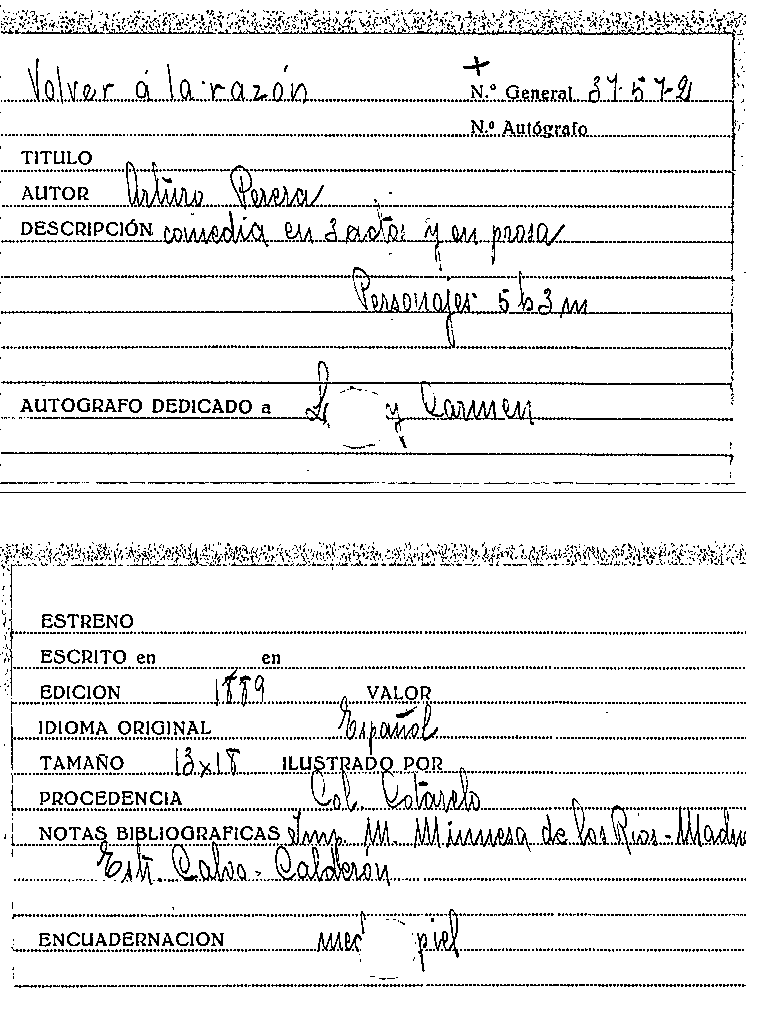 Volver á la razón
N.º General 37-57-2
N.º Autógrafo
TITULO
AUTOR Arturo Perera
DESCRIPCIÓN comedia en 3 actos y en prosa
Personajes: 5 h 3 m
AUTOGRAFO DEDICADO a y Carmen
ESTRENO
ESCRITO en en
EDICION 1889 VALOR
IDIOMA ORIGINAL Español
TAMAÑO 13x18 ILUSTRADO POR
PROCEDENCIA Col. Cotarelo
NOTAS BIBLIOGRAFICAS Imp. M. Minuesa de los Rios - Madri
Estr. Calvo - Calderón
ENCUADERNACION med piel